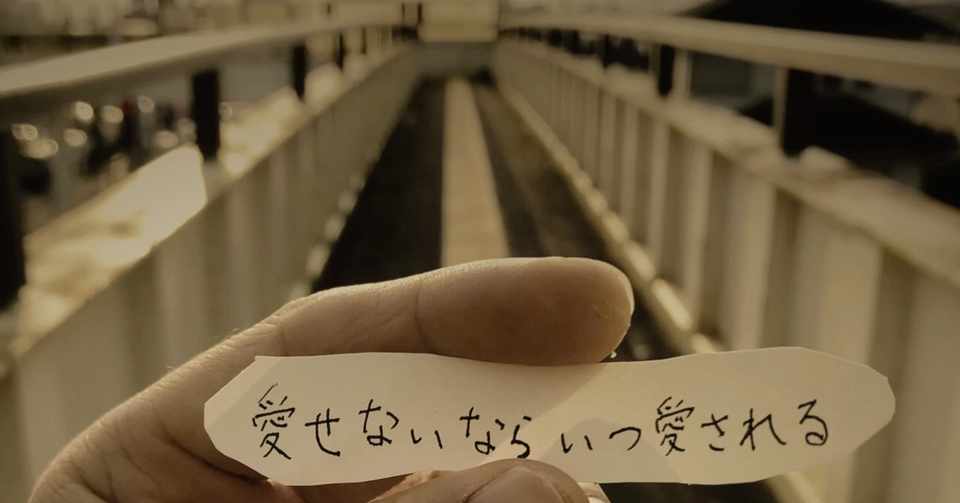 愛せないならいつ愛される